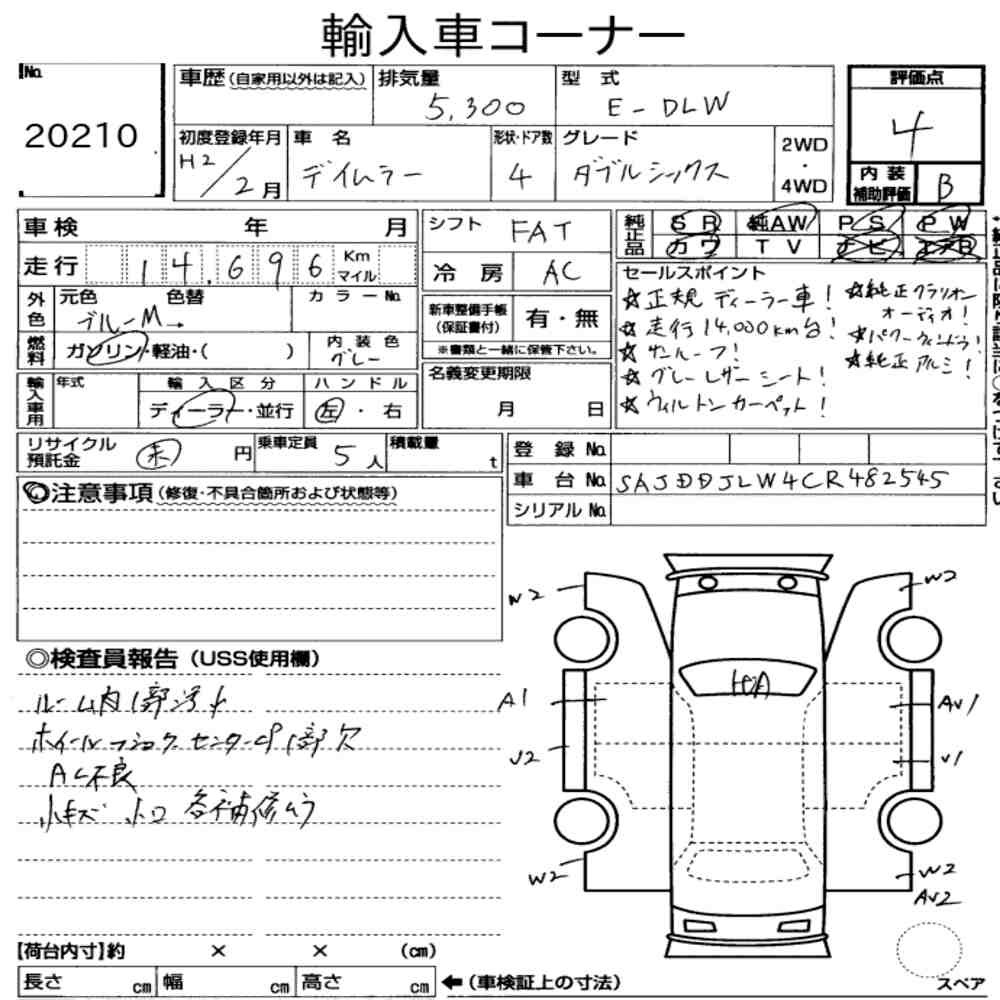 輸入車コーナー
No.
20210
車歴 (自家用以外は記入)
排気量
5,300
型 式
E-DLW
評価点
4
初度登録年月
H2/2月
車 名
デイムラー
形状・ドア数
4
グレード
ダブルシックス
2WD
・
4WD
内装
補助評価
B
車検 年 月
走行 14,696 Km
マイル
シフト
FAT
冷 房
AC
純正品
SR 純AW PS PW
カワ TV ナビ エアB
外色
元色 色替
ブルーM→
カラーNo.
燃料
ガソリン・軽油・( )
内装色
グレー
新車整備手帳
(保証書付)
有・無
※書類と一緒に保管下さい。
セールスポイント
☆正規ディーラー車!
☆走行14,000km台!
☆サンルーフ!
☆グレーレザーシート!
☆ウィルトンカーペット!
☆純正クラリオン
オーディオ!
☆パワーウィンドウ!
☆純正アルミ!
輸入車用
年式
輸入区分
ディーラー・並行
ハンドル
左・右
名義変更期限
月 日
リサイクル
預託金
未 円
乗車定員
5人
積載量
t
登録No.
車台No.
SAJDDJLW4CR482545
シリアルNo.
◎注意事項 (修復・不具合箇所および状態等)
◎検査員報告 (USS使用欄)
ルーム内1部汚れ
ホイールフックセンターCP1部欠
AC不良
小キズ 小凹 各補修ムラ
W2
W2
A1
AV1
J2
V1
W2
W2
AV2
スペア
【荷台内寸】約 × × (cm)
長さ cm 幅 cm 高さ cm ←(車検証上の寸法)